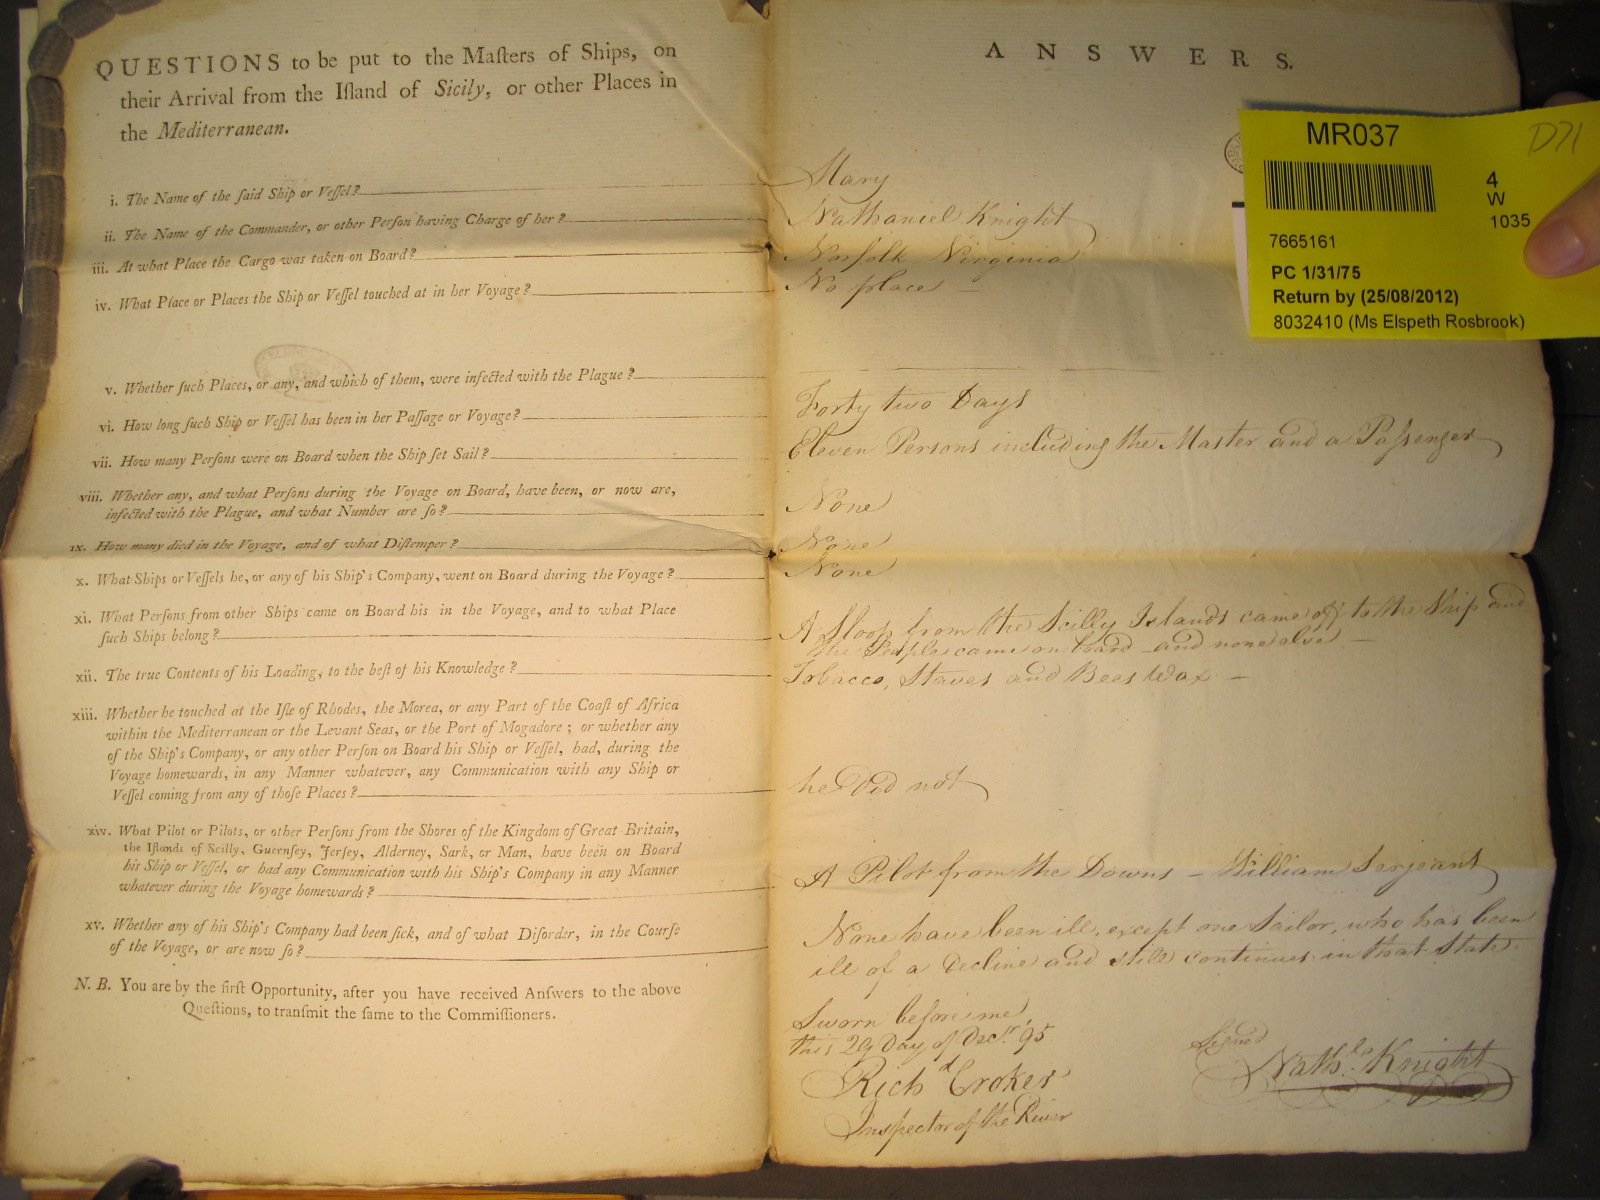 QUESTIONS to be put to the Maſters of Ships, on
their Arrival from the Iſland of Sicily, or other Places in
the Mediterranean.
i. The Name of the ſaid Ship or Veſſel?
ii. The Name of the Commander, or other Perſon having Charge of her?
iii. At what Place the Cargo was taken on Board?
iv. What Place or Places the Ship or Veſſel touched at in her Voyage?
v. Whether ſuch Places, or any, and which of them, were infected with the Plague?
vi. How long ſuch Ship or Veſſel has been in her Paſſage or Voyage?
vii. How many Perſons were on Board when the Ship ſet Sail?
viii. Whether any, and what Perſons during the Voyage on Board, have been, or now are,
infected with the Plague, and what Number are ſo?
ix. How many died in the Voyage, and of what Diſtemper?
x. What Ships or Veſſels he, or any of his Ship's Company, went on Board during the Voyage?
xi. What Perſons from other Ships came on Board his in the Voyage, and to what Place
ſuch Ships belong?
xii. The true Contents of his Loading, to the beſt of his Knowledge?
xiii. Whether he touched at the Iſle of Rhodes, the Morea, or any Part of the Coaſt of Africa
within the Mediterranean or the Levant Seas, or the Port of Mogadore; or whether any
of the Ship's Company, or any other Perſon on Board his Ship or Veſſel, had, during the
Voyage homewards, in any Manner whatever, any Communication with any Ship or
Veſſel coming from any of thoſe Places?
xiv. What Pilot or Pilots, or other Perſons from the Shores of the Kingdom of Great Britain,
the Iſlands of Scilly, Guernſey, Jerſey, Alderney, Sark, or Man, have been on Board
his Ship or Veſſel, or had any Communication with his Ship's Company in any Manner
whatever during the Voyage homewards?
xv. Whether any of his Ship's Company had been ſick, and of what Diſorder, in the Courſe
of the Voyage, or are now ſo?
N. B. You are by the firſt Opportunity, after you have received Anſwers to the above
Queſtions, to tranſmit the ſame to the Commiſſioners.
ANSWERS.
Mary
Nathaniel Knight
Norfolk Virginia
No place —
Forty two Days
Eleven Persons including the Master and a Paſsenger
None
None
None
A Sloop from the Scilly Islands came off to the Ship and
the People came on board and none else —
Tobacco, Staves and Bees Wax —
he Did not
A Pilot from the Downs — William Serjeant
None have been ill, except one Sailor, who has been
ill of a Decline and still continues in that State.
Sworn before me,
this 29 Day of Decr. 95
Richd Croker
Inspector of the River
Signed
Nathl. Knight
MR037
D71
4
W
1035
7665161
PC 1/31/75
Return by (25/08/2012)
8032410 (Ms Elspeth Rosbrook)